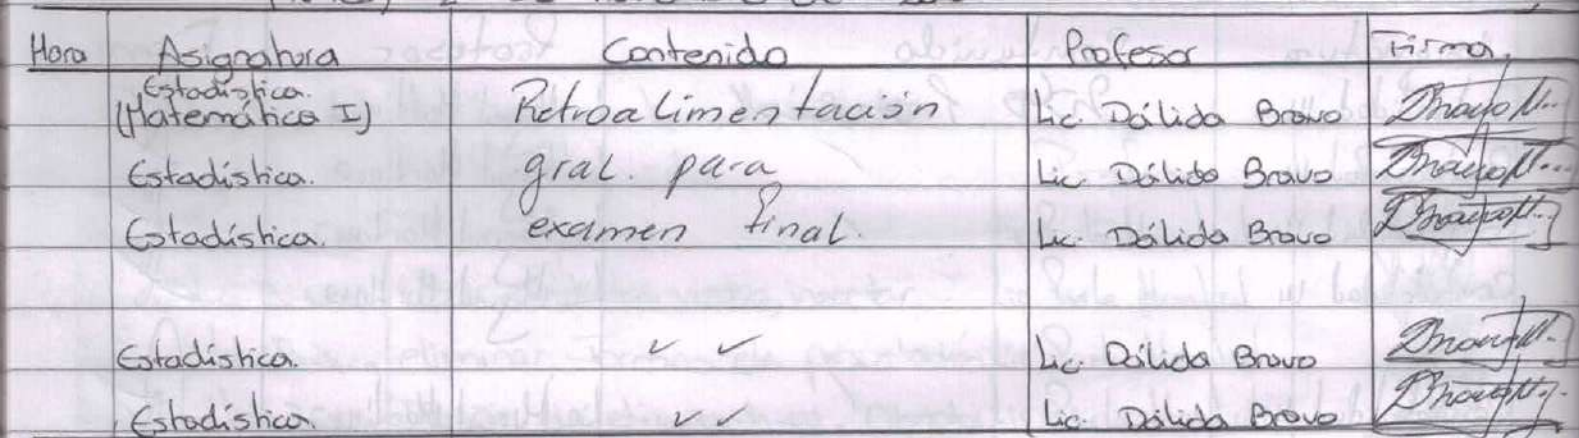 Hora Asignatura Contenido Profesor Firma
Estadística.
(Matemática I) Retroalimentación Lic. Dálida Bravo
Estadística. gral. para Lic. Dálida Bravo
Estadística. examen final. Lic. Dálida Bravo
Estadística. ✓ ✓ Lic. Dálida Bravo
Estadística. ✓ ✓ Lic. Dálida Bravo